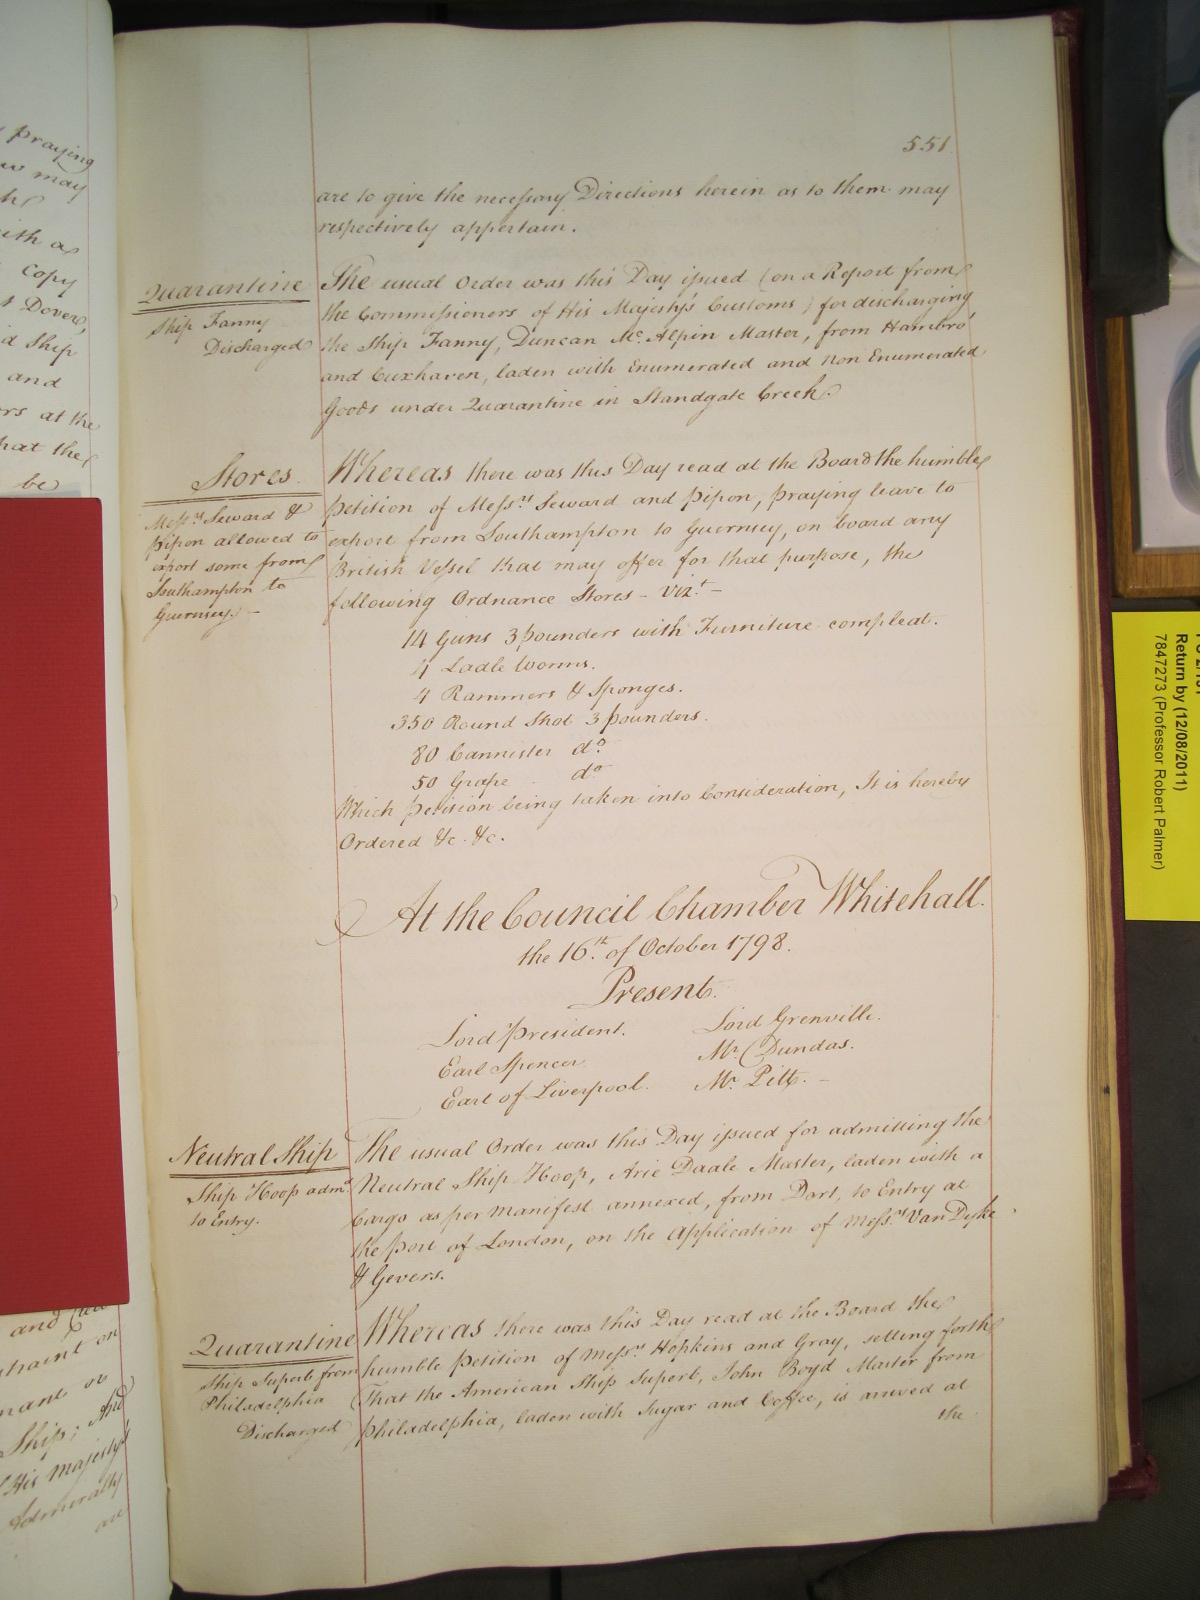 praying
may
ith a
Copy
t Dover,
d Ship
and
rs at the
hat the
be
551
are to give the necessary Directions herein as to them may
respectively appertain.
Quarantine
Ship Fanny
Discharged
The usual Order was this Day issued (on a Report from
the Commissioners of His Majesty's Customs) for discharging
the Ship Fanny, Duncan Mc. Alpin Master, from Hambro'
and Cuxhaven, laden with Enumerated and Non Enumerated
Goods under Quarantine in Standgate Creek.
Stores
Messrs Seward &
Pipon allowed to
export some from
Southampton to
Guernsey. -
Whereas there was this Day read at the Board the humble
Petition of Messrs Seward and Pipon, praying leave to
export from Southampton to Guernsey, on board any
British Vessel that may offer for that purpose, the
following Ordnance Stores - Vizt -
14 Guns 3 pounders with Furniture compleat.
4 Ladle Worms.
4 Rammers & Sponges.
350 Round Shot 3 pounders.
80 Cannister do
50 Grape do
Which Petition being taken into Consideration, It is hereby
Ordered &c. &c.
At the Council Chamber Whitehall.
the 16th of October 1798.
Present.
Lord President. Lord Grenville.
Earl Spencer Mr. Dundas.
Earl of Liverpool. Mr. Pitt. -
Neutral Ship
Ship Hoop admd
to Entry.
The usual Order was this Day issued for admitting the
Neutral Ship Hoop, Arie Daale Master, laden with a
Cargo as per Manifest annexed, from Dort, to Entry at
the Port of London, on the Application of Messrs Van Dyke
& Gevers.
Quarantine
Ship Superb from
Philadelphia
Discharged
Whereas there was this Day read at the Board the
humble Petition of Messrs Hopkins and Gray, setting forth
That the American Ship Superb, John Boyd Master from
Philadelphia, laden with Sugar and Coffee, is arrived at
the
and
on
or
Ship; And
His Majesty's
Admiralty
are
Return by (12/08/2011)
7847273 (Professor Robert Palmer)